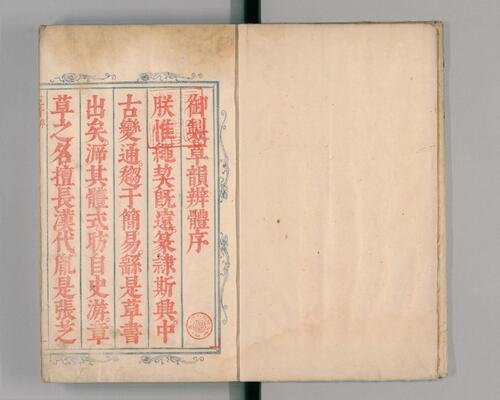 御製草韻辨體序
朕惟繩契旣遠篆隷斯興中
古變通趨于簡易繇是草書
出矣溯其體式昉自史游章
草之名擅長漢代胤是張芝